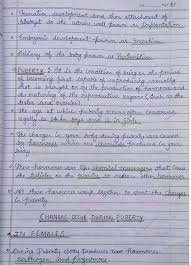 Formation, development and then attachment of
to the uterine wall known as Implantation
Embryonic development known as Gestation
Delivery of the baby known as Parturition
PUBERTY : It is the condition of being or the period
of becoming first capable of reproducing sexually
that is brought on by the production of hormones and
the maturing of the reproductive organs (such as the
testes and ovaries)
The age at which puberty occurs often construed
legally as 14 in boys and 12 in girls
The changes in your body during puberty are caused
by hormones which are chemicals produced in your
body
These hormones are like chemical messengers that cause
the testicles or the ovaries to release other hormones
All these hormones work together to start the changes
in puberty
CHANGES OCCUR DURING PUBERTY
IN FEMALES
During Puberty, ovary produces two hormones
oestrogen and progesterone